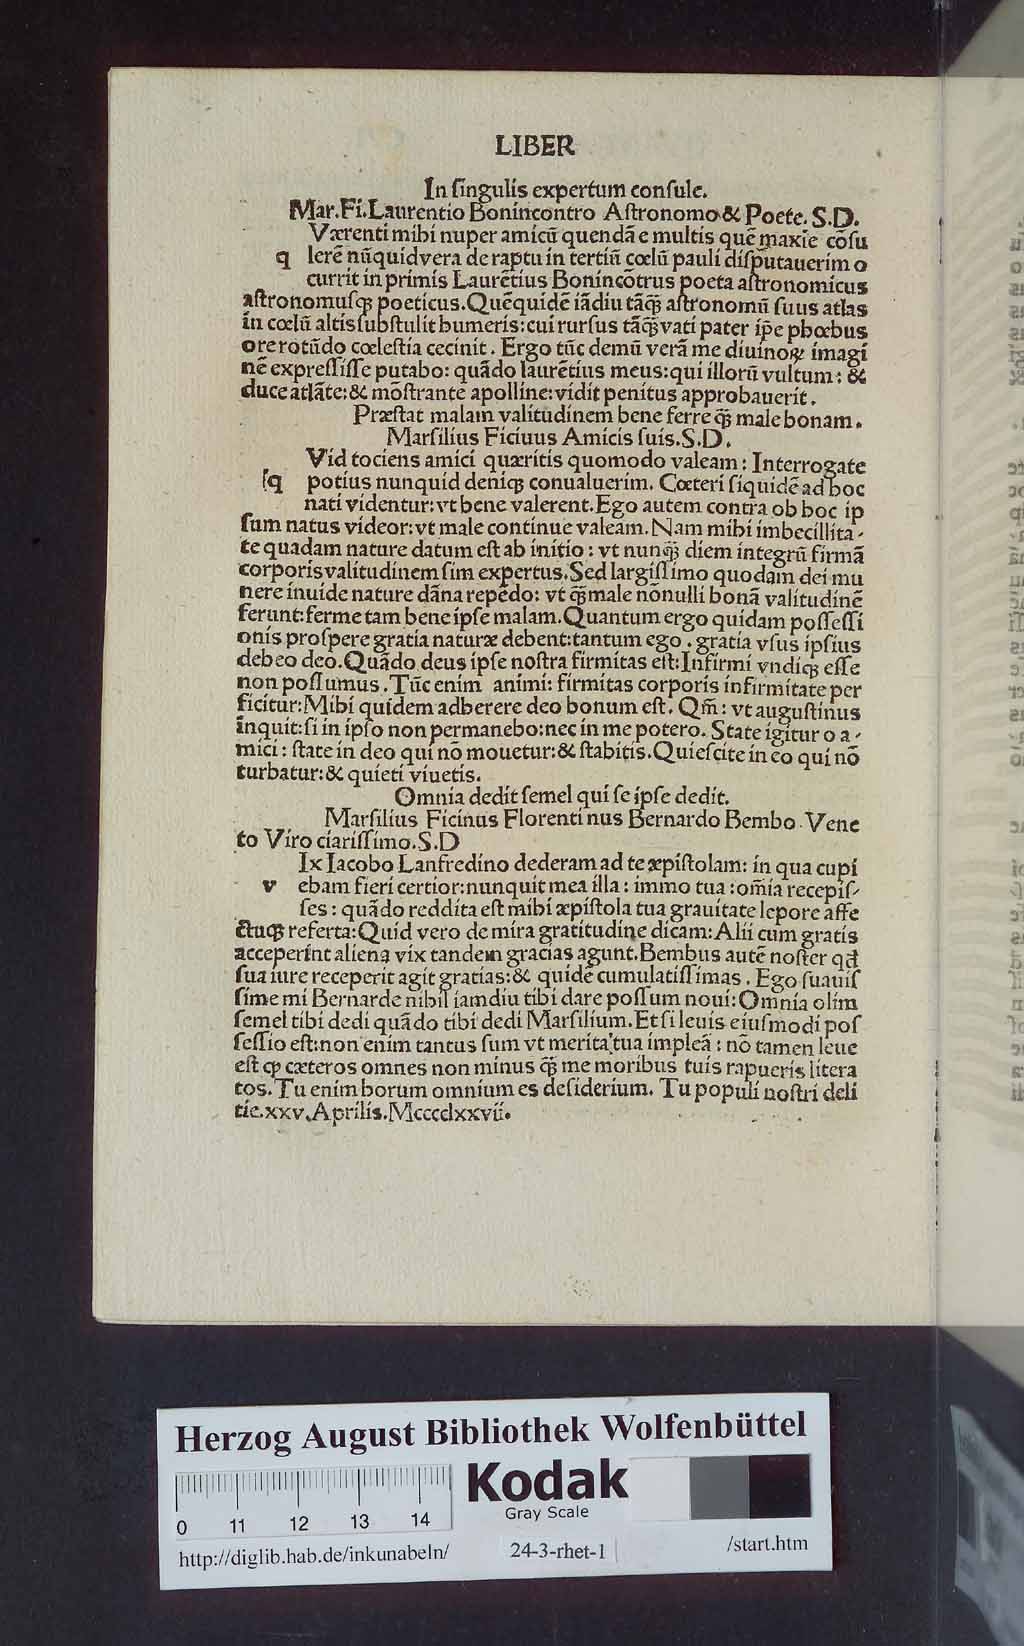 LIBER
In singulis expertum consule.
Mar.Fi.Laurentio Bonincontro Astronomo & Poete. S.D.
Værenti mihi nuper amicū quendā e multis quē maxīe cōsu
q lerē nūquid vera de raptu in tertiū cœlū pauli disputauerim o
currit in primis Laurētius Bonincōtrus poeta astronomicus
astronomusqȝ poeticus. Quēquidē iādiu tāqȝ astronomū suus atlas
in cœlū altis substulit humeris: cui rursus tāqȝ vati pater ip̄e phœbus
ore rotūdo cœlestia cecinit. Ergo tūc demū verā me diuinoꝝ imagi
nē expressisse putabo: quādo laurētius meus: qui illorū vultum: &
duce atlāte: & mōstrante apolline: vidit penitus approbauerit.
Præstat malam valitudinem bene ferre qȝ male bonam.
Marsilius Ficiuus Amicis suis. S.D.
Vid tociens amici quæritis quomodo valeam: Interrogate
q potius nunquid deniqȝ conualuerim. Cœteri siquidē ad hoc
nati videntur: vt bene valerent. Ego autem contra ob hoc ip
sum natus videor: vt male continue valeam. Nam mihi imbecillita-
te quadam nature datum est ab initio: vt nunqȝ diem integrū firmā
corporis valitudinem sim expertus. Sed largissimo quodam dei mu
nere inuide nature dāna repēdo: vt qȝ male nōnulli bonā valitudinē
ferunt: ferme tam bene ipse malam. Quantum ergo quidam possessi
onis prospere gratia naturæ debent: tantum ego. gratia vsus ipsius
debeo deo. Quādo deus ipse nostra firmitas est: Infirmi vndiqȝ esse
non possumus. Tūc enim animi: firmitas corporis infirmitate per
ficitur: Mihi quidem adherere deo bonum est. Qm̄: vt augustinus
inquit: si in ipso non permanebo: nec in me potero. State igitur o a-
mici: state in deo qui nō mouetur: & stabitis. Quiescite in eo qui nō
turbatur: & quieti viuetis.
Omnia dedit semel qui se ipse dedit.
Marsilius Ficinus Florentinus Bernardo Bembo Vene
to Viro clarissimo. S.D
Ix Iacobo Lanfredino dederam ad te æpistolam: in qua cupi
v ebam fieri certior: nunquit mea illa: immo tua: om̄ia recepis-
ses: quādo reddita est mihi æpistola tua grauitate lepore affe
ctuqȝ referta: Quid vero de mira gratitudine dicam: Alii cum gratis
acceperint aliena vix tandem gracias agunt. Bembus autē noster qđ
sua iure receperit agit gratias: & quidē cumulatissimas. Ego suauis
sime mi Bernarde nihil iamdiu tibi dare possum noui: Omnia olim
semel tibi dedi quādo tibi dedi Marsilium. Et si leuis eiusmodi pos
sessio est: non enim tantus sum vt merita tua impleā: nō tamen leue
est ꝙ cæteros omnes non minus qȝ me moribus tuis rapueris litera
tos. Tu enim horum omnium es desiderium. Tu populi nostri deli
tie. xxv. Aprilis. Mccccclxxvii.
Herzog August Bibliothek Wolfenbüttel
Kodak
Gray Scale
0 11 12 13 14
http://diglib.hab.de/inkunabeln/ 24-3-rhet-1 /start.htm